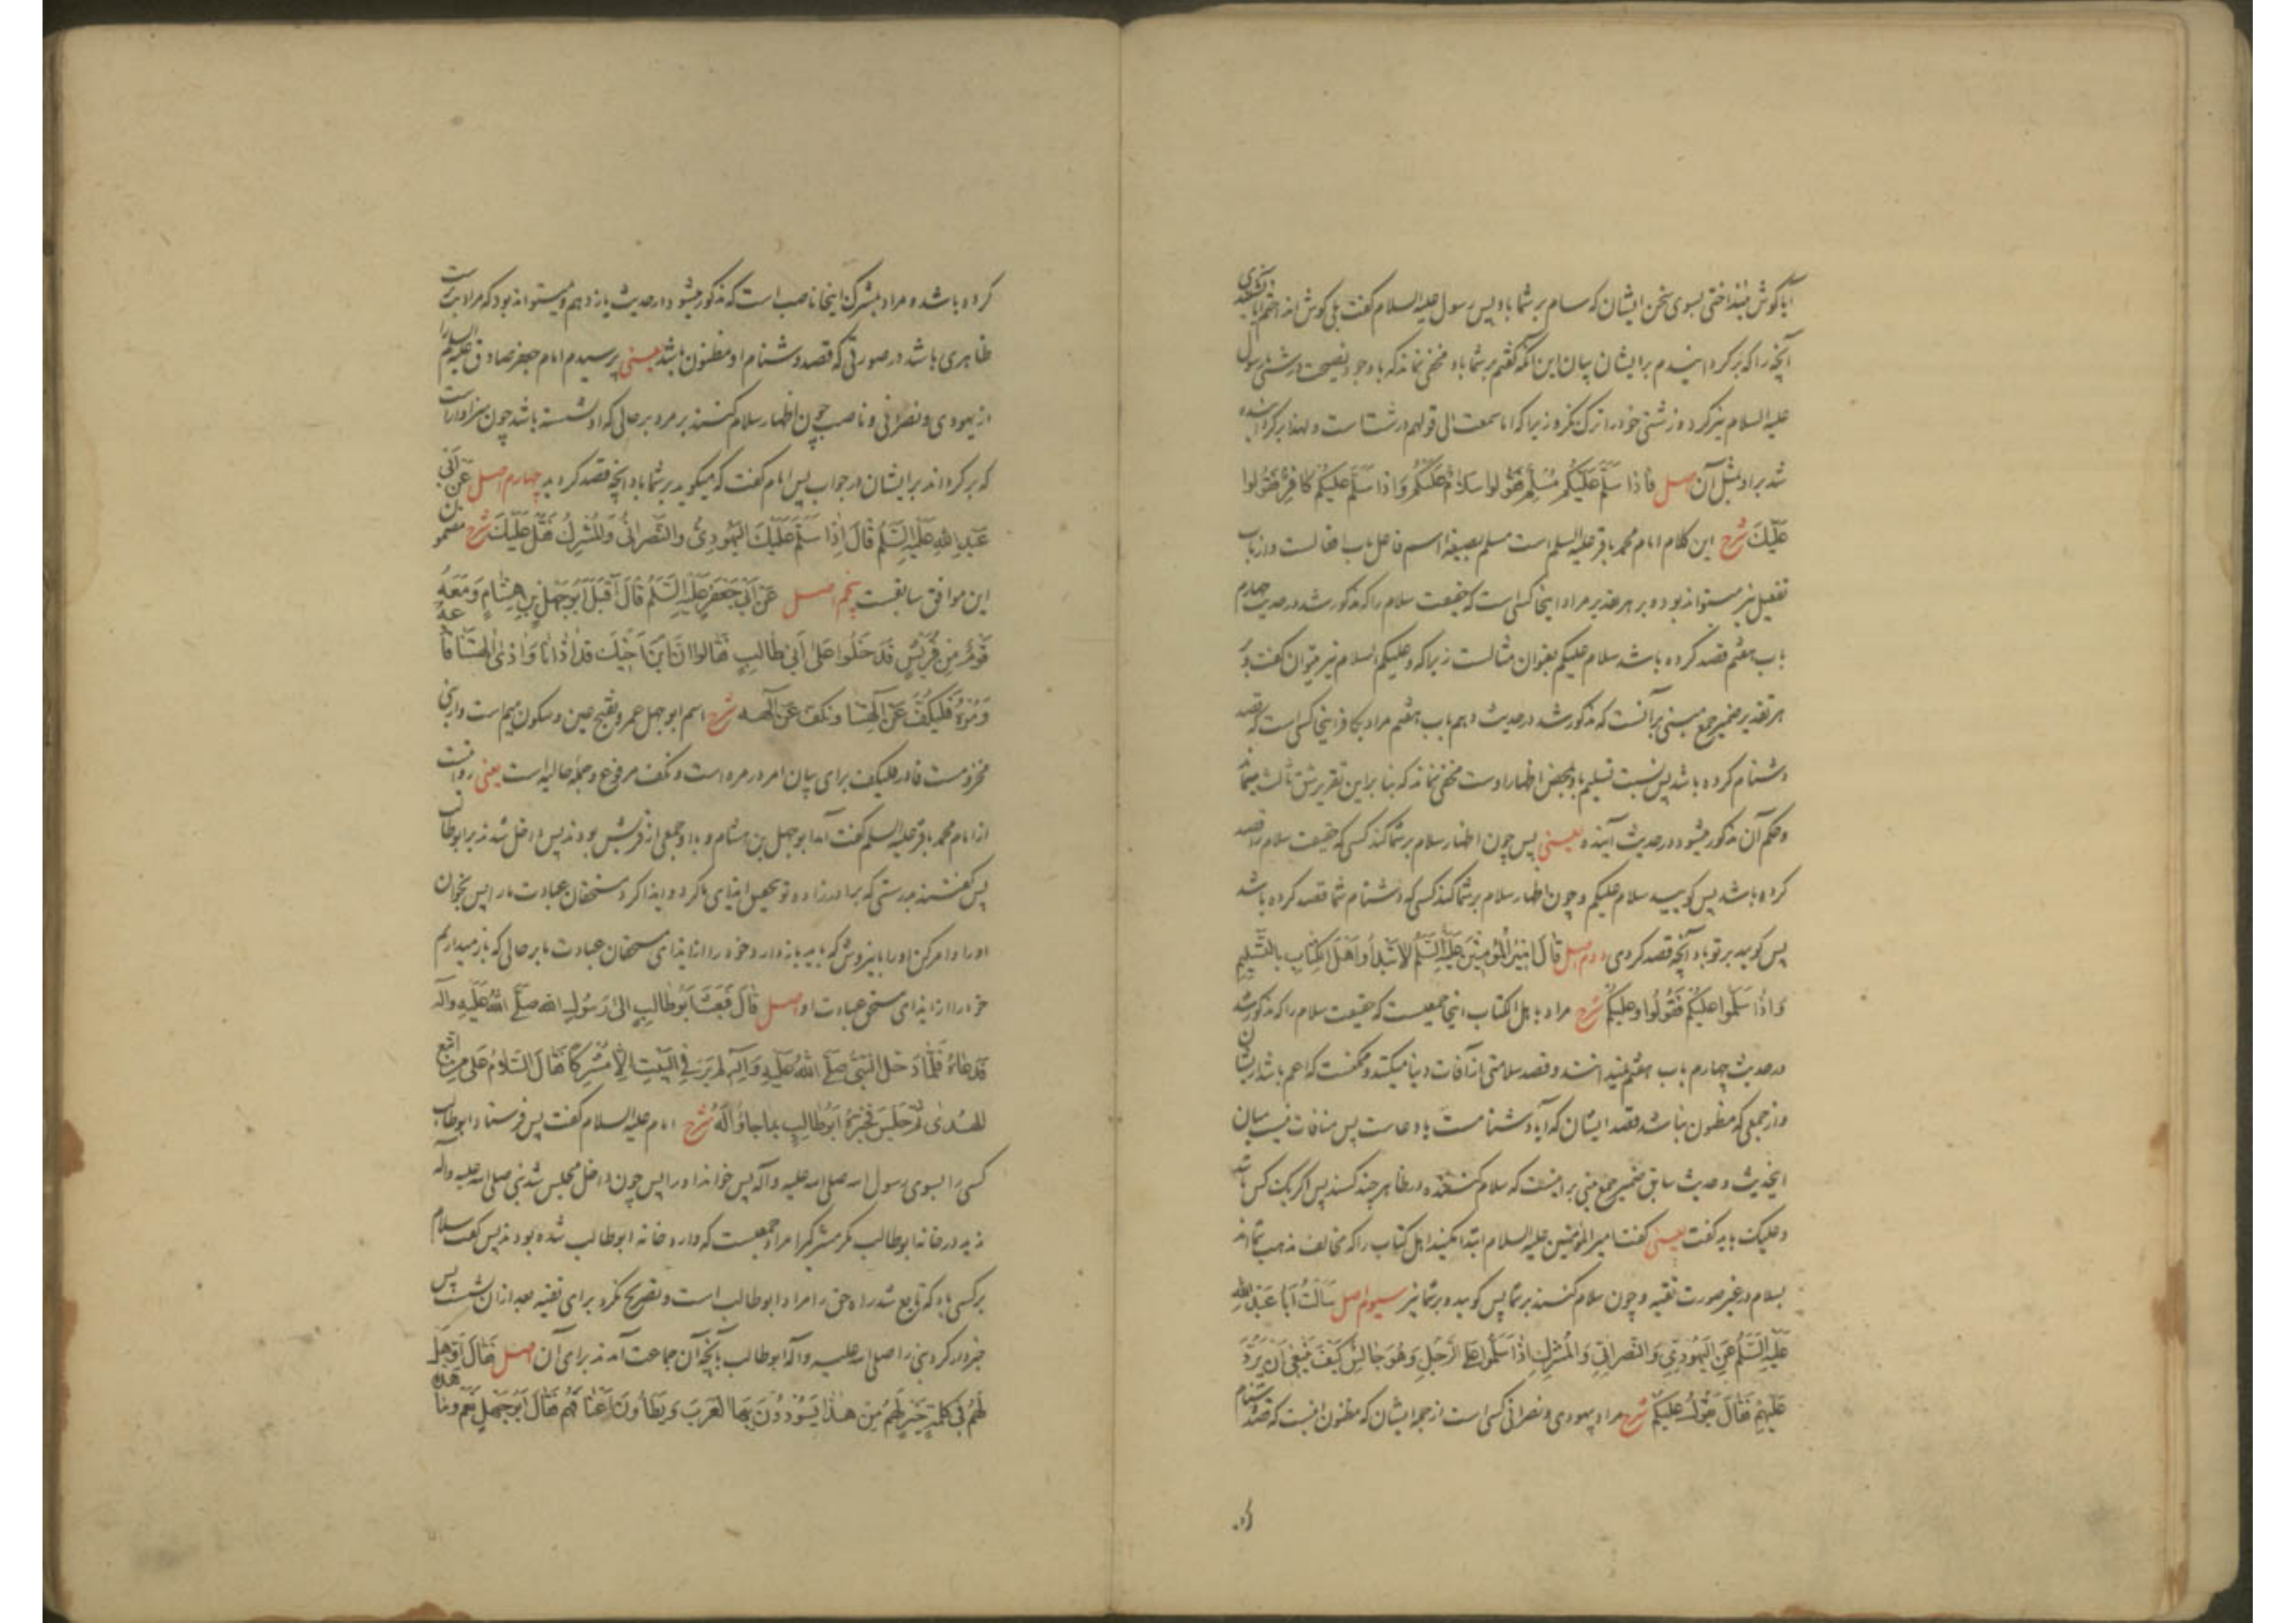 آیا گوش نینداختی بسوی سخن ایشان که سام بر شما باد پس رسول علیه السلام گفت بلی گوش انداختم آیا نشنیدی
آنچه را که برگردانیدم بر ایشان بیان این آنکه گفتم بر شما باد مخفی نماند که با وجود نصیحت درشتی رسول
علیه السلام نیز کرده درشتی خود را ترک نکرد زیرا که اما سمعت الی قولهم درشت است و لهذا برگردانیده
شد بر او مثل آن اصل فَاذا سَلَّمَ عَلَیْکُمْ مُسْلِمٌ فَقُولوا سَلامٌ عَلَیْکُمْ وَاذا سَلَّمَ عَلَیْکُمْ کافِرٌ فَقُولوا
عَلَیْکَ شرح این کلام امام محمد باقر علیه السلم است مسلم بصیغه اسم فاعل باب افعالست و از باب
تفعیل نیز میتواند بود و بر هر تقدیر مراد اینجا کسی است که حقیقت سلام را که مذکور شد در حدیث چهارم
باب هفتم قصد کرده باشد سلام علیکم بعنوان مثالست زیرا که وعلیکم السلام نیز میتوان گفت و بر
هر تقدیر ضمیر جمع مبنی بر آنست که مذکور شد در حدیث دهم باب هفتم مراد بکافر اینجا کسی است که قصد
دشنام کرده باشد پس نسبت تسلیم باو بمحض اظهار اوست مخفی نماند که بنا براین تقریر شق ثالث میماند
و حکم آن مذکور میشود در حدیث آینده یعنی پس چون اظهار سلام بر شما کند کسی که حقیقت سلام را قصد
کرده باشد پس گویید سلام علیکم و چون اظهار سلام بر شما کند کسی که دشنام شما قصد کرده باشد
پس گویید بر تو باد آنچه قصد کردی دوم اصل قالَ امیرُ الْمُؤمِنینَ عَلَیْهِ السَّلَمُ لا تَبْدَأُوا اَهْلَ الْکِتابِ بِالتَّسْلیمِ
وَاذا سَلَّموا عَلَیْکُمْ فَقُولُوا وَعَلَیْکُمْ شرح مراد باهل الکتاب اینجا جمعیست که حقیقت سلام را که مذکور شد
در حدیث چهارم باب هفتم نمیدانند و قصد سلامتی از آفات دنیا میکنند و ممکنست که اعم باشد از ایشان
و از جمعی که مظنون نباشد قصد ایشان که آیا دشنامست یا دعاست پس منافات نیست میان
اینحدیث و حدیث سابق ضمیر جمع مبنی بر اینست که سلام کننده در ظاهر چند کسند پس اگر یک کس باشد
وعلیک باید گفت یعنی گفت امیر المؤمنین علیه السلام ابتدا مکنید اهل کتاب را که مخالف مذهب شمااند
بسلام در غیر صورت تقیه و چون سلام کنند بر شما پس گویید و بر شما نیز سیوم اصل سَاَلْتُ اَبا عَبْدِ اللهِ
عَلَیْهِ السَّلَمُ عَنِ الْیَهُودِیِّ وَالنَّصْرانِیِّ وَالْمُشْرِکِ اِذا سَلَّمُوا عَلَی الرَّجُلِ وَهُوَ جالِسٌ کَیْفَ یَنْبَغی اَنْ یَرُدَّ
عَلَیْهِمْ فَقالَ یَقُولُ عَلَیْکُمْ شرح مراد بیهودی و نصرانی کسی است از جمله ایشان که مظنون اینست که قصد دشنام
کرده باشد و مراد بمشرک اینجا ناصب است که مذکور میشود در حدیث یازدهم و میتواند بود که مراد بت پرست
ظاهری باشد در صورتی که قصد دشنام او مظنون باشد یعنی پرسیدم امام جعفر صادق علیه السلام را
از یهودی و نصرانی و ناصب چون اظهار سلام کنند بر مرد بر حالی که او نشسته باشد چون سزاوار است
که برگرداند بر ایشان در جواب پس امام گفت که میگوید بر شما باد آنچه قصد کردید چهارم اصل عَنْ اَبی
عَبْدِ اللهِ عَلَیْهِ السَّلَمُ قالَ اِذا سَلَّمَ عَلَیْکَ الْیَهُودِیُّ والنَّصْرانِیُّ وَالْمُشْرِکُ فَقُلْ عَلَیْکَ شرح مضمون
این موافق سابقست پنجم اصل عَنْ اَبی جَعْفَرٍ عَلَیْهِ السَّلَمُ قالَ اَقْبَلَ اَبُوجَهْلِ بْنِ هِشامٍ وَمَعَهُ
قَوْمٌ مِنْ قُرَیْشٍ فَدَخَلُوا عَلی اَبی طالِبٍ فَقالوا اِنَّ ابْنَ اَخیکَ قَدْ اٰذانا وَاٰذی اٰلِهَتَنا فَادْعُهُ
وَمُرْهُ فَلْیَکُفَّ عَنْ اٰلِهَتِنا ونکف عَنْ اٰلهه شرح اسم ابوجهل عمرو بفتح عین و سکون میم است و از بنی
مخزومست فا در فلیکف برای بیان امر در مره است و نکف مرفوع و جمله حالیه است یعنی روایت است
از امام محمد باقر علیه السلم گفت آمد ابوجهل بن هشام و با او جمعی از قریش بودند پس داخل شدند بر ابوطالب
پس گفتند بدرستی که برادرزاده تو بتحقیق ایذای ما کرد و ایذا کرد مستحقان عبادت ما را پس بخوان
او را و امر کن او را باینروش که باید باز دارد خود را از ایذای مستحقان عبادت ما بر حالی که باز میداریم
خود را از ایذای مستحق عبادت او اصل قالَ فَبَعَثَ اَبُوطالِبٍ اِلی رَسُولِ الله صَلَّی اللهُ عَلَیْهِ وَآلِه
فَدَعاهُ فَلَمّا دَخَلَ النَّبِی صَلَّی اللهُ عَلَیْهِ وَآلِهِ لَمْ یَرَ فِی الْبَیْتِ اِلّا مُشْرِکًا فَقالَ السَّلامُ عَلی مَنِ اتَّبَعَ
الهُدی ثُمَّ جَلَسَ فَخَبَّرَهُ اَبُوطالِبٍ بِما جاؤُا لَهُ شرح امام علیه السلام گفت پس فرستاد ابوطالب
کسی را بسوی رسول الله صلی الله علیه وآله پس خواند او را پس چون داخل مجلس شد نبی صلی الله علیه وآله
ندید در خانه ابوطالب مگر مشرکی را مراد جمعیست که وارد خانه ابوطالب شده بودند پس گفت سلام
بر کسی باد که تابع شد راه حق را مراد ابوطالب است و تصریح نکرد برای تقیه بعد از آن نشست پس
خبردار کرد نبی را صلی الله علیه وآله ابوطالب بآنچه آن جماعت آمدند برای آن اصل فَقالَ اَوَ هَلْ
لَهُمْ فی کَلِمَةٍ خَیْرٍ لَهُمْ مِنْ هذا یَسُودُونَ بِهَا الْعَرَبَ وَیَطَأُونَ اَعْناقَهُمْ فَقالَ اَبُوجَهْلٍ نَعَمْ وَما هٰذِهِ